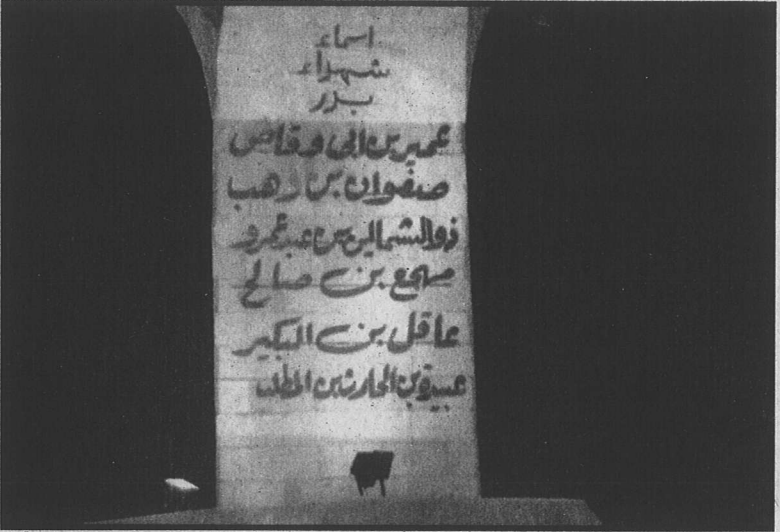 اسماء
شهداء
بدر
عمير بن ابی وقاص
صفوان بن وهب
ذوالشمالين بن عبد عمرو
مهجع بن صالح
عاقل بن البكير
عبيدة بن الحارث بن المطلب